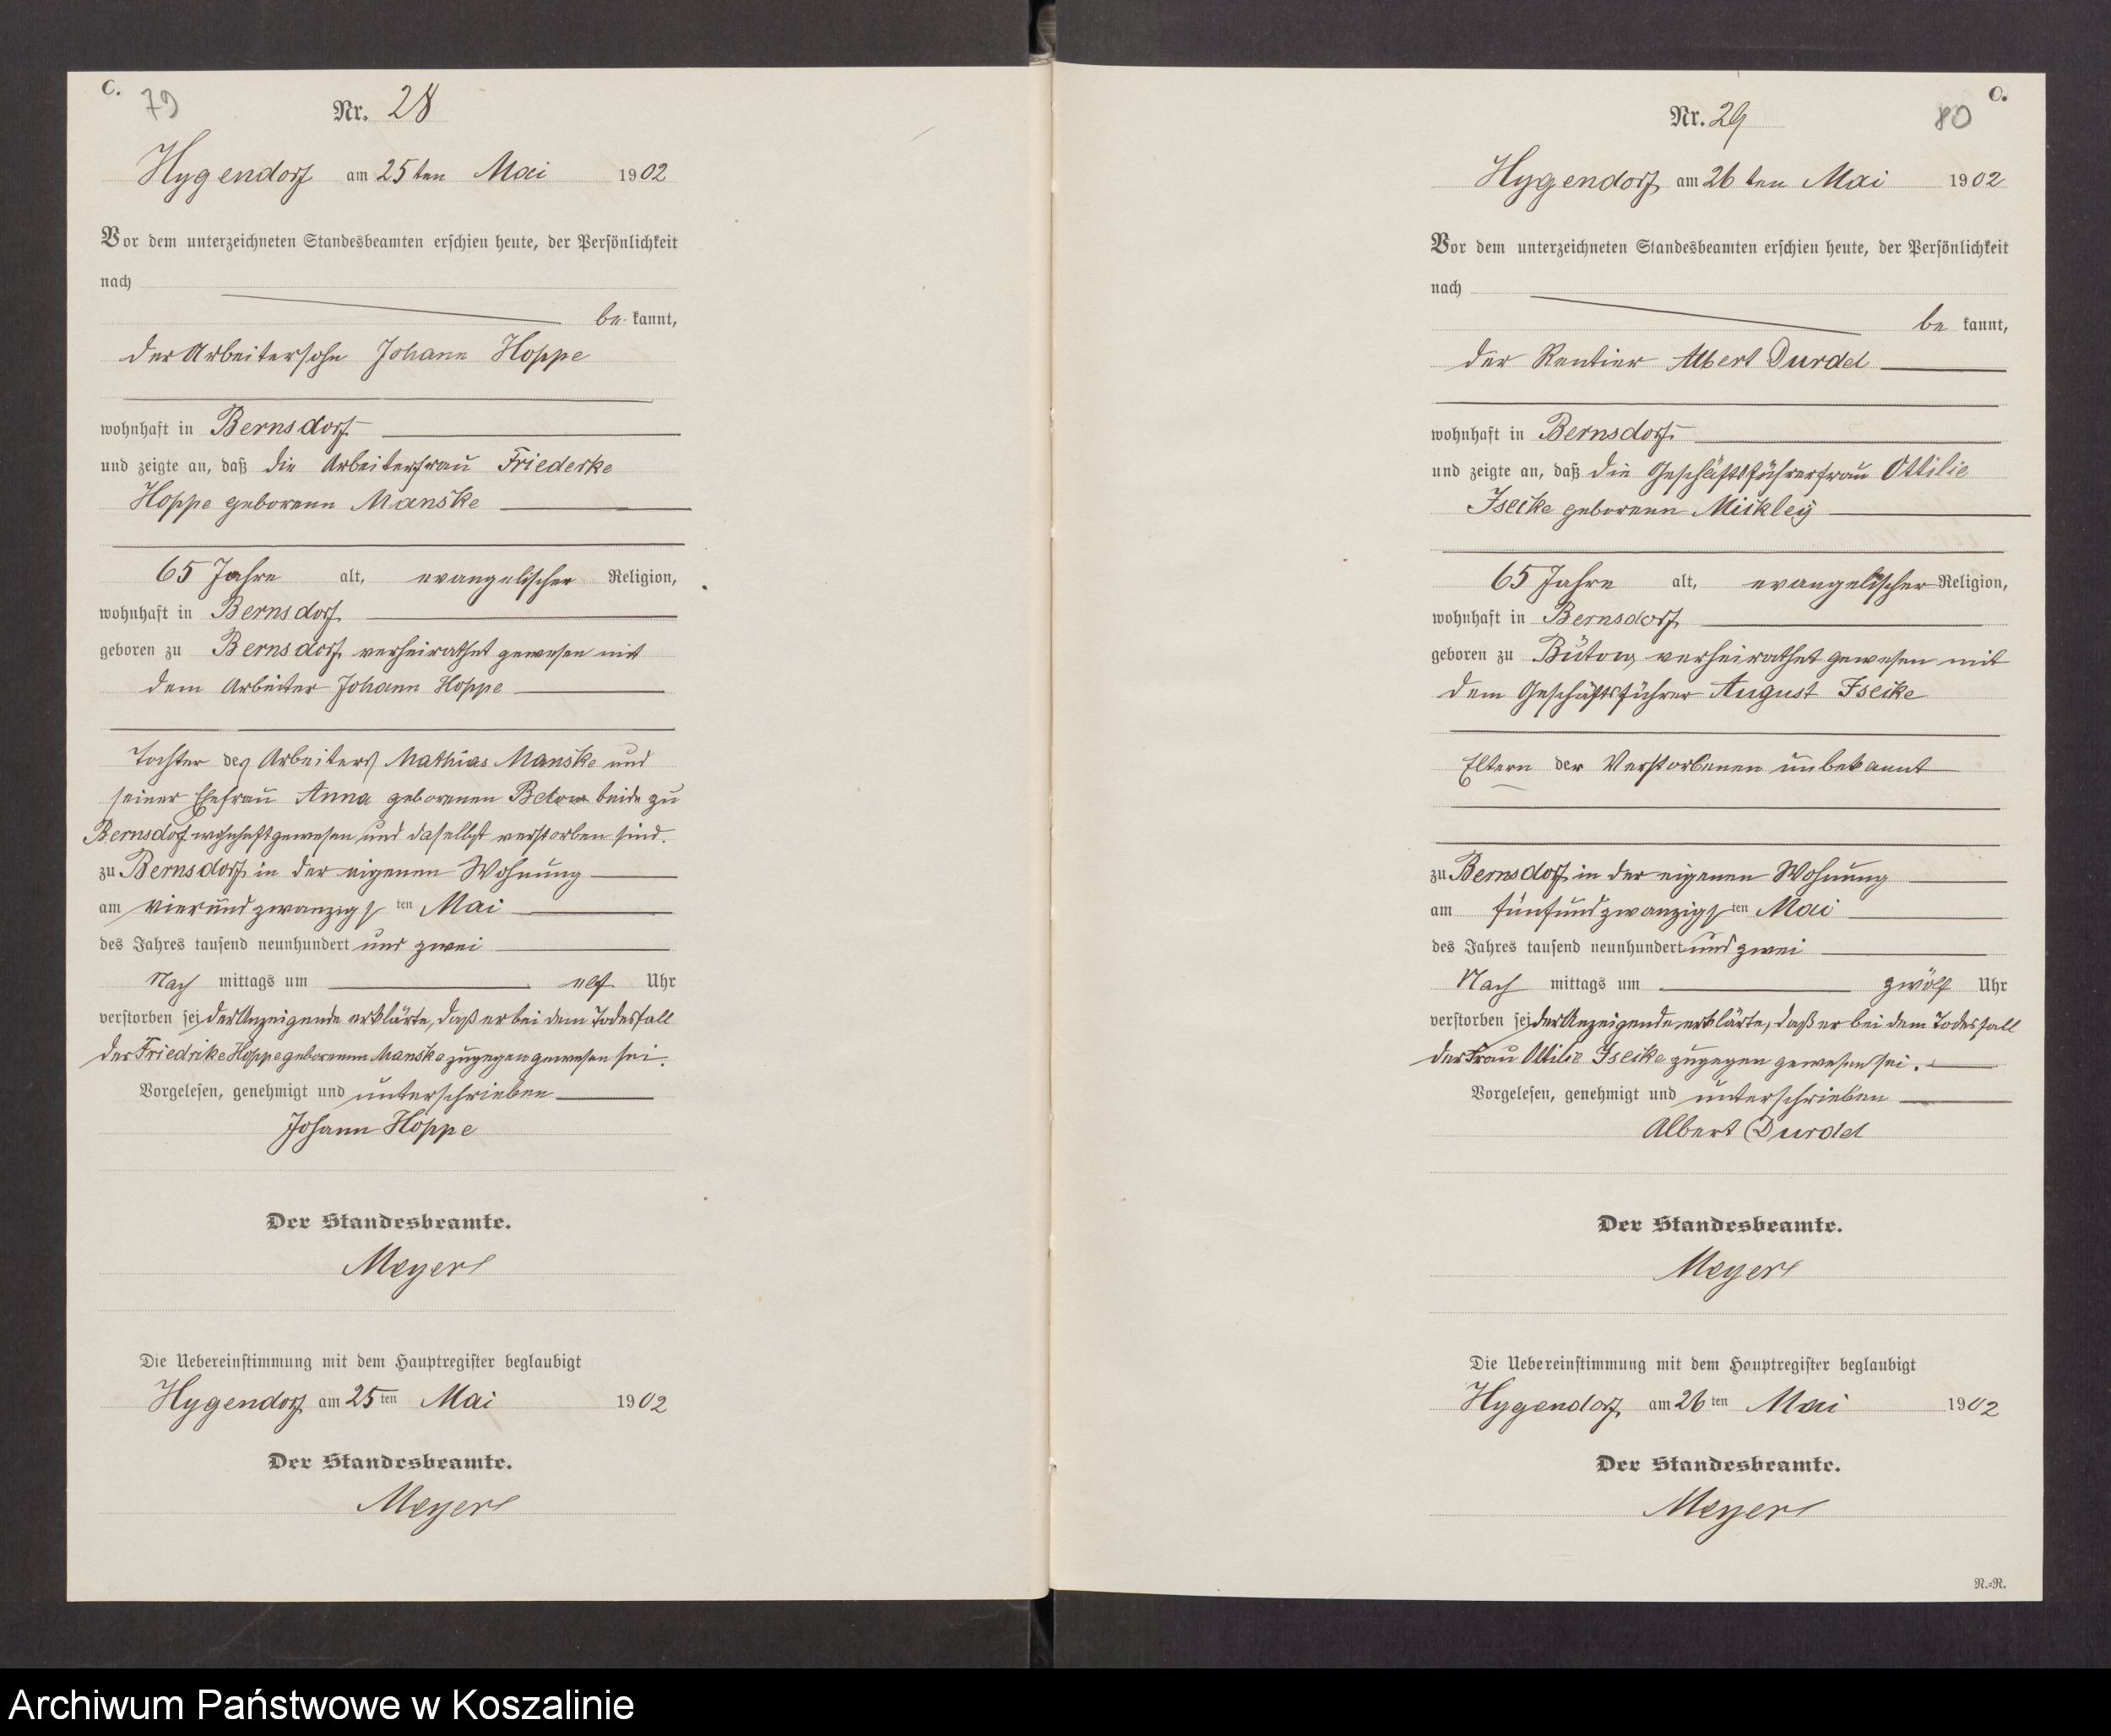 C.
79
Nr. 28
Hygendorf am 25ten Mai 1902
Vor dem unterzeichneten Standesbeamten erschien heute, der Persönlichkeit
nach
be kannt,
der Arbeitersohn Johann Hoppe
wohnhaft in Bernsdorf
und zeigte an, daß die Arbeiterfrau Friederke
Hoppe geborenen Manske
65 Jahre alt, evangelischer Religion,
wohnhaft in Bernsdorf
geboren zu Bernsdorf verheirathet gewesen mit
dem Arbeiter Johann Hoppe
Tochter des Arbeiters Mathias Manske und
seiner Ehefrau Anna geborenen Betow beide zu
Bernsdorf wohnhaft gewesen und daselbst verstorben sind.
zu Bernsdorf in der eigenen Wohnung
am vierundzwanzigs ten Mai
des Jahres tausend neunhundert und zwei
Nach mittags um elf Uhr
verstorben sei der Anzeigende erklärte, daß er bei dem Todesfall
der Friedrike Hoppe geborenen Manske zugegen gewesen sei.
Vorgelesen, genehmigt und unterschrieben
Johann Hoppe
Der Standesbeamte.
Meyer
Die Uebereinstimmung mit dem Hauptregister beglaubigt
Hygendorf am 25ten Mai 1902
Der Standesbeamte.
Meyer
C.
80
Nr. 29
Hygendorf am 26ten Mai 1902
Vor dem unterzeichneten Standesbeamten erschien heute, der Persönlichkeit
nach
be kannt,
der Rentier Albert Durdel
wohnhaft in Bernsdorf
und zeigte an, daß die Geschäftsführerfrau Ottilie
Iseike geborenen Mickley
65 Jahre alt, evangelischer Religion,
wohnhaft in Bernsdorf
geboren zu Bütow verheirathet gewesen mit
dem Geschäftsführer August Iseike
Eltern der Verstorbenen unbekannt
zu Bernsdorf in der eigenen Wohnung
am fünfundzwanzigs ten Mai
des Jahres tausend neunhundert und zwei
Nach mittags um zwölf Uhr
verstorben sei der Anzeigende erklärte, daß er bei dem Todesfall
der Frau Ottilie Iseike zugegen gewesen sei.
Vorgelesen, genehmigt und unterschrieben
Albert Durdel
Der Standesbeamte.
Meyer
Die Uebereinstimmung mit dem Hauptregister beglaubigt
Hygendorf am 26ten Mai 1902
Der Standesbeamte.
Meyer
N.=R.
Archiwum Państwowe w Koszalinie